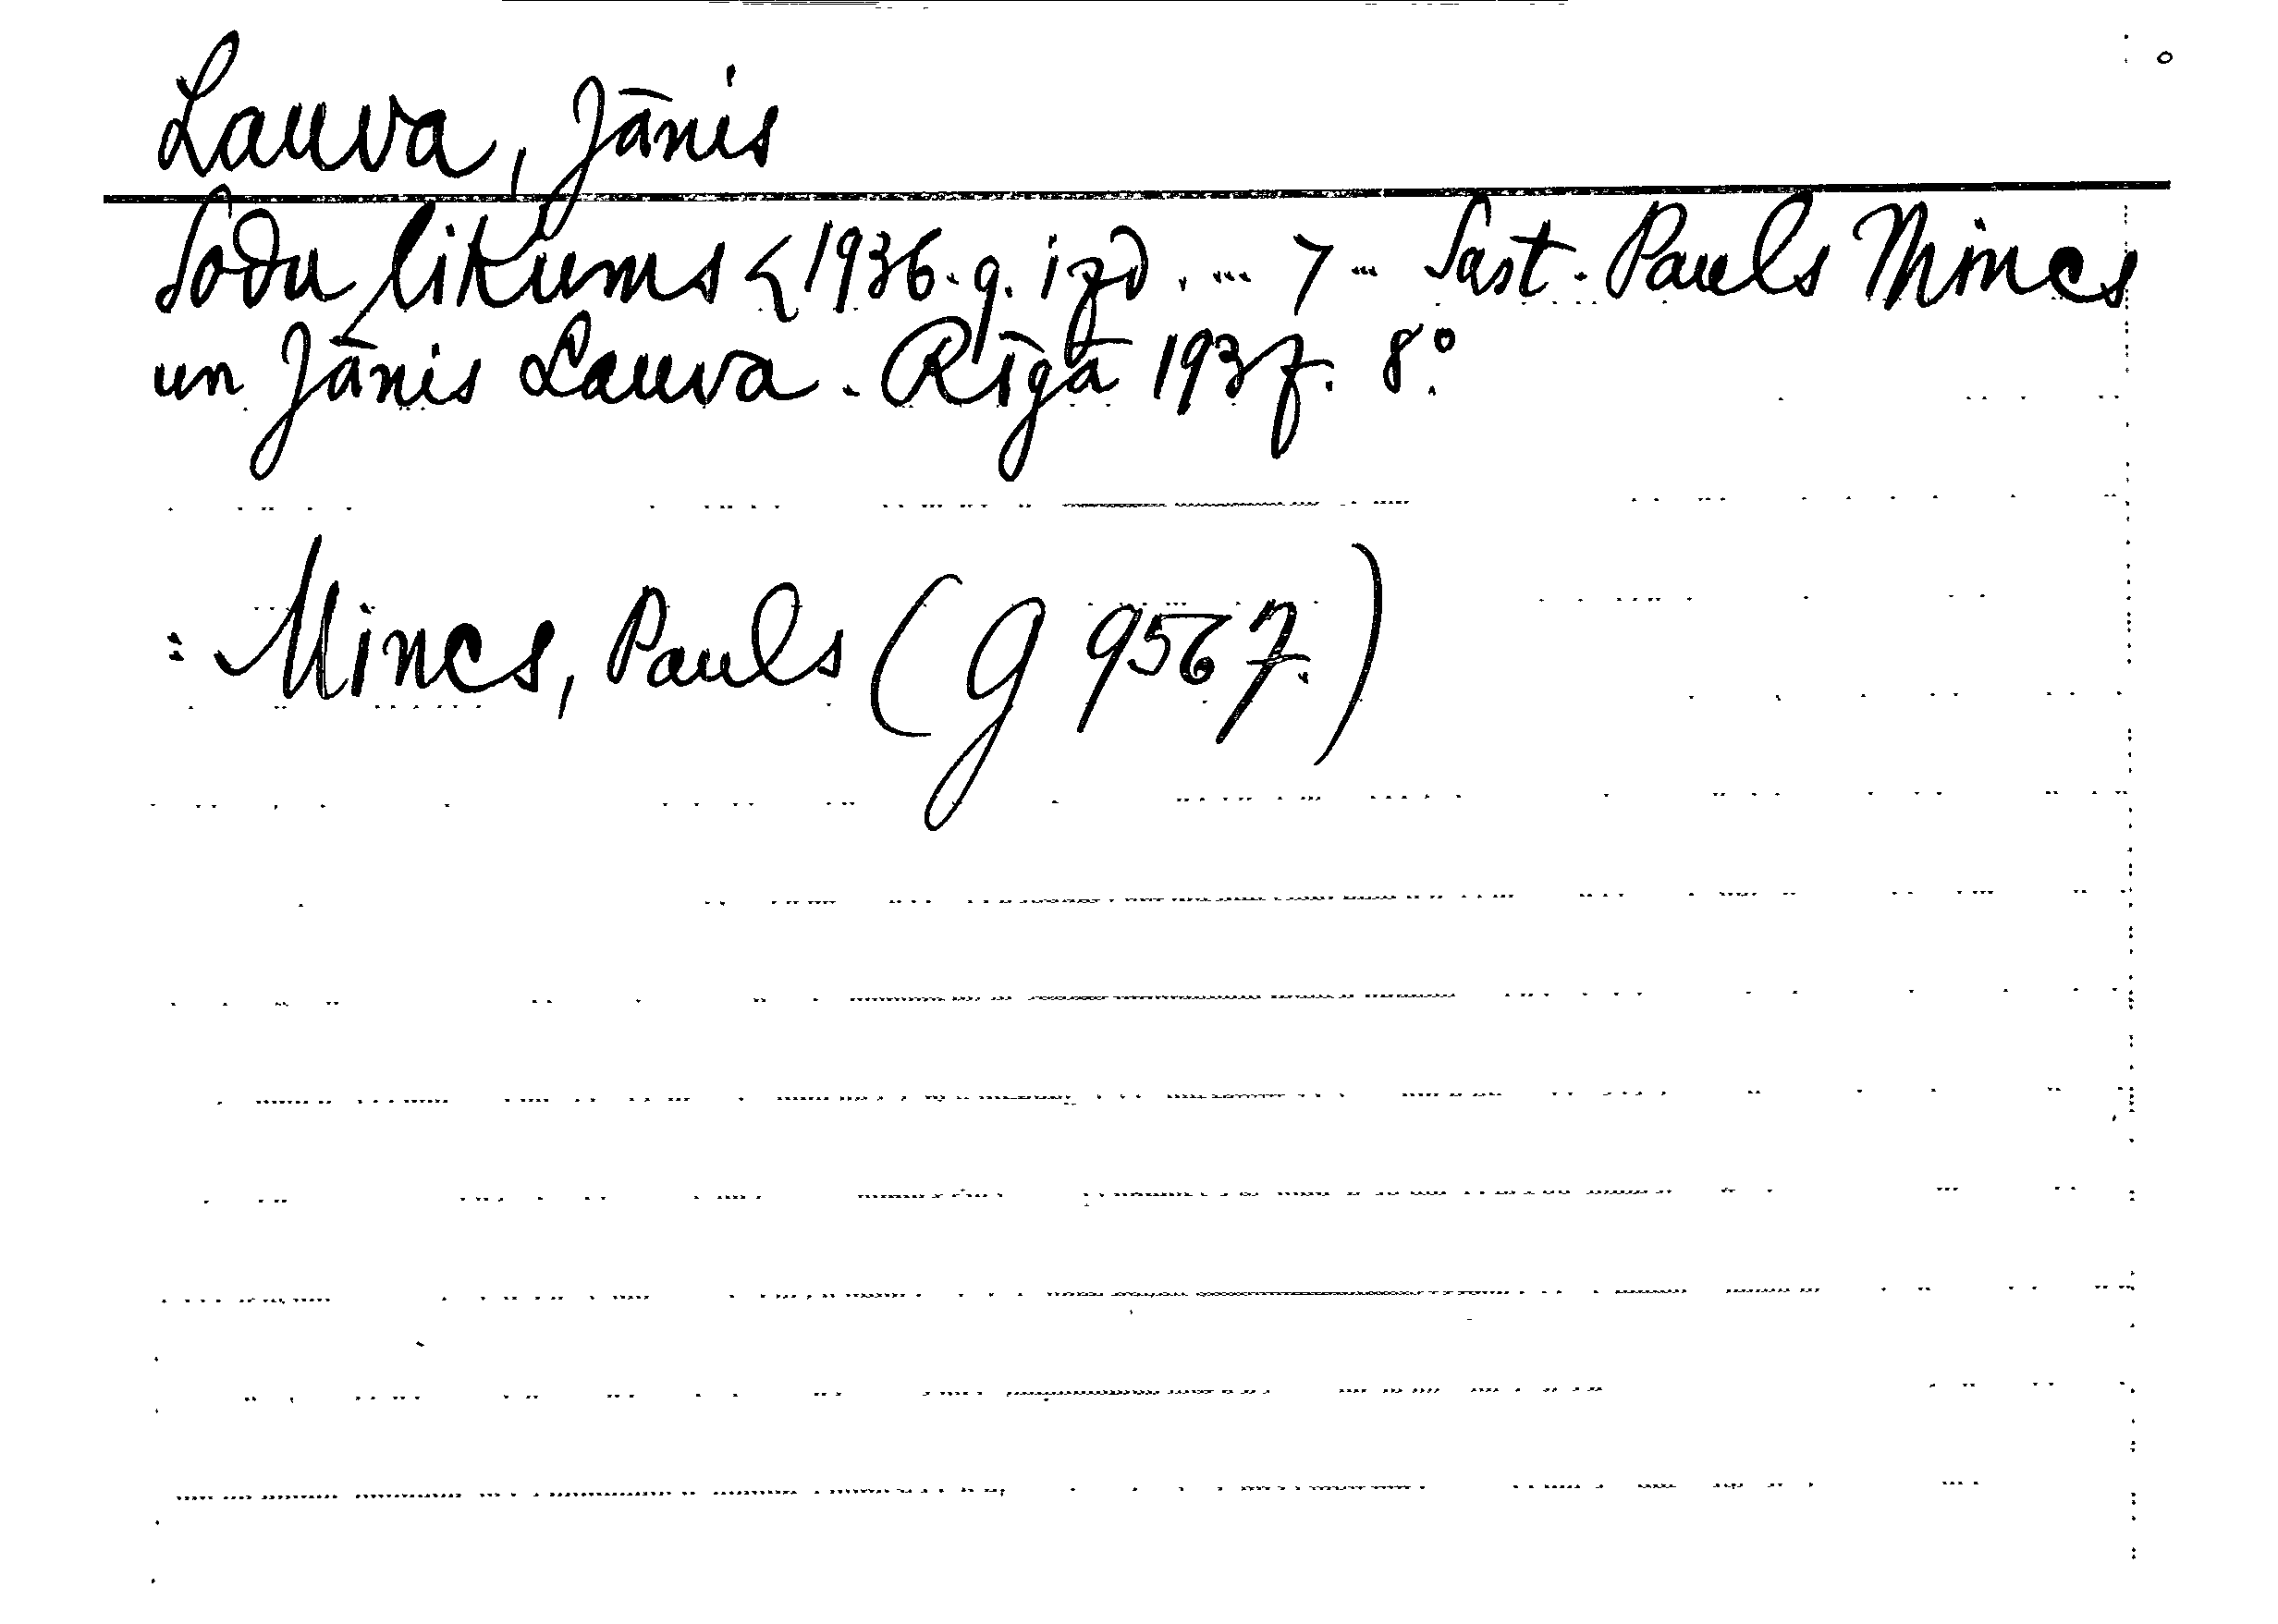 Lauva, Jānis
Sodu likums <1936. g. izd. ... > ... Sast. Pauls Mincs
un Jānis Lauva. Rīgā 1937. 8°.
: Mincs, Pauls (G 9567.)